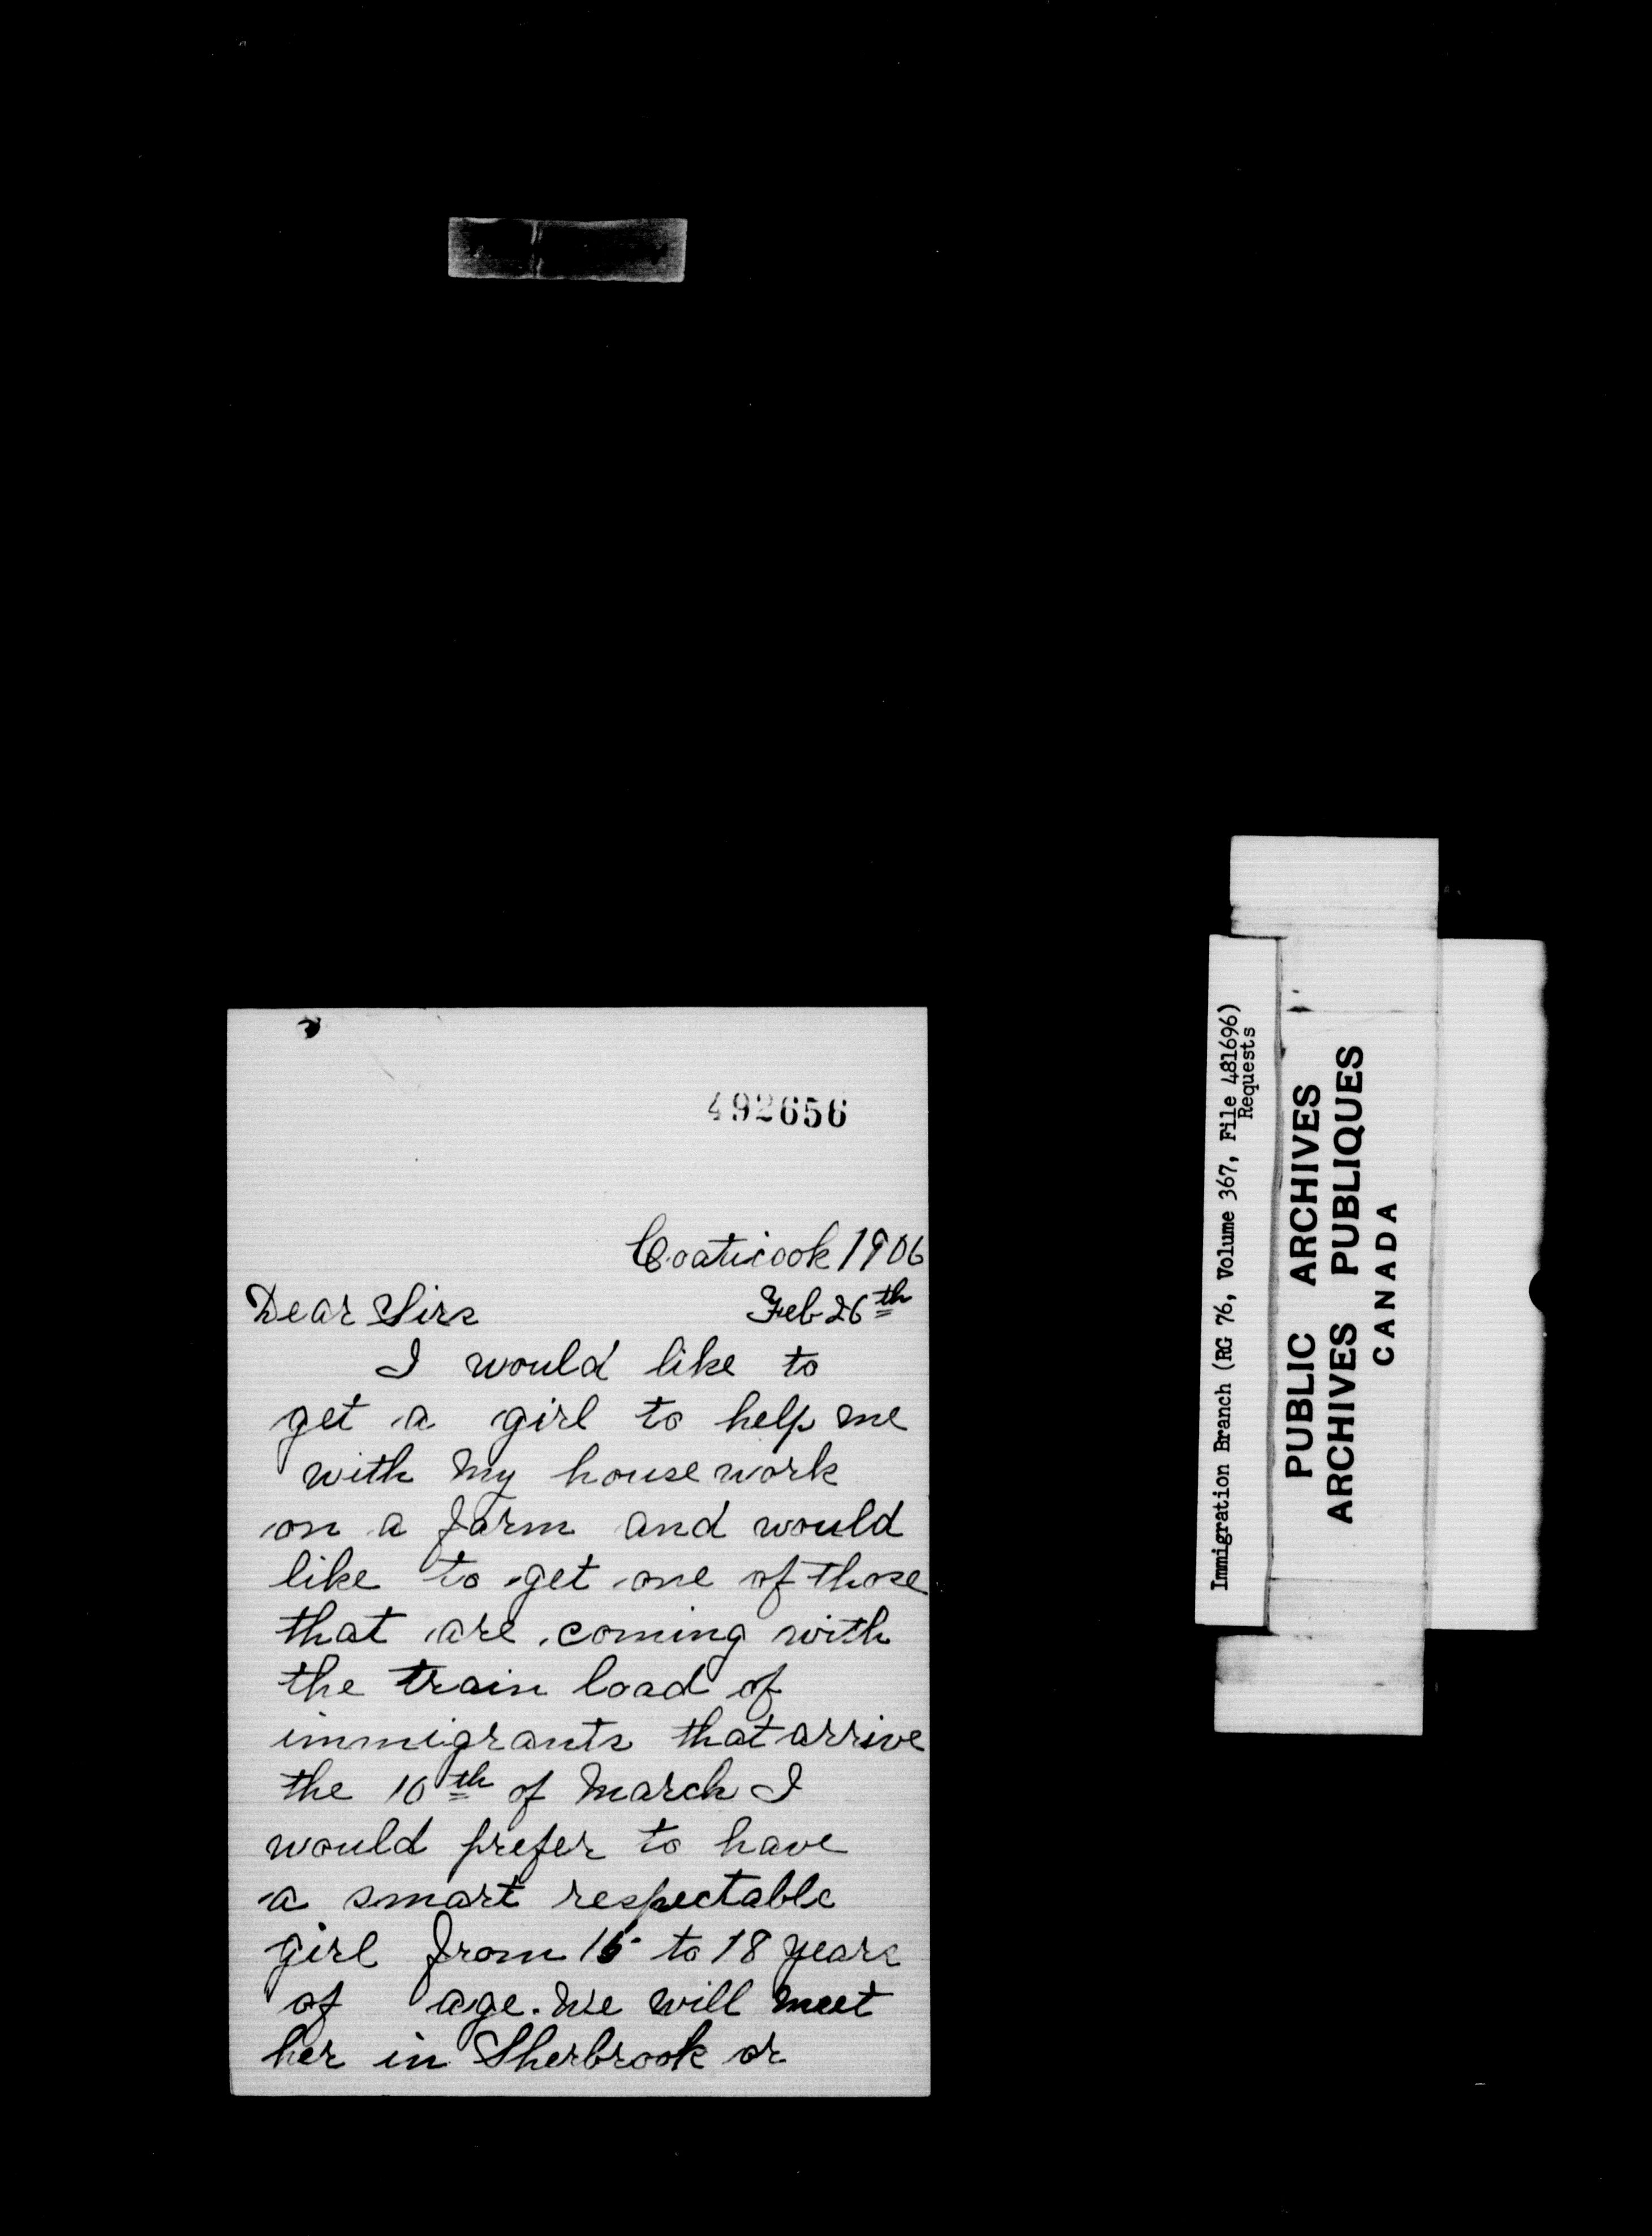 492656
Coaticook 1906
Dear Sirs Feb 26th
I would like to
get a girl to help me
with my house work
on a farm and would
like to get one of those
that are coming with
the train load of
immigrants that arrive
the 10th of March I
would prefer to have
a smart respectable
girl from 15 to 18 years
of age. We will meet
her in Sherbrook or
Immigration Branch (RG 76, Volume 367, File 481696)
Requests
PUBLIC ARCHIVES
ARCHIVES PUBLIQUES
CANADA